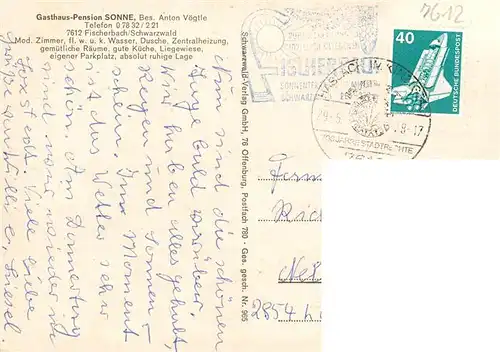 Gasthaus-Pension SONNE, Bes. Anton Vögtle
Telefon 0 78 32 / 2 21
7612 Fischerbach/Schwarzwald
Mod. Zimmer, fl. w. u. k. Wasser, Dusche, Zentralheizung,
gemütliche Räume, gute Küche, Liegewiese,
eigener Parkplatz, absolut ruhige Lage
Nun sind die schönen
Tage bald vorüber.
Wir haben alles gehabt,
Regen und Sonne –
schein. Im Moment
ist das Wetter sehr
schön. Am Donnerstag
sind wir wieder in
Loxstedt. Viele liebe
Grüße Willi u. Liesel
Schwarzwald-Verlag GmbH, 76 Offenburg, Postfach 780 - Ges. gesch. Nr. 965
7612
FISCHERB
40
DEUTSCHE BUNDESPOST
HASLACH IM KINZIGTAL
Fam
Rich
2854 L